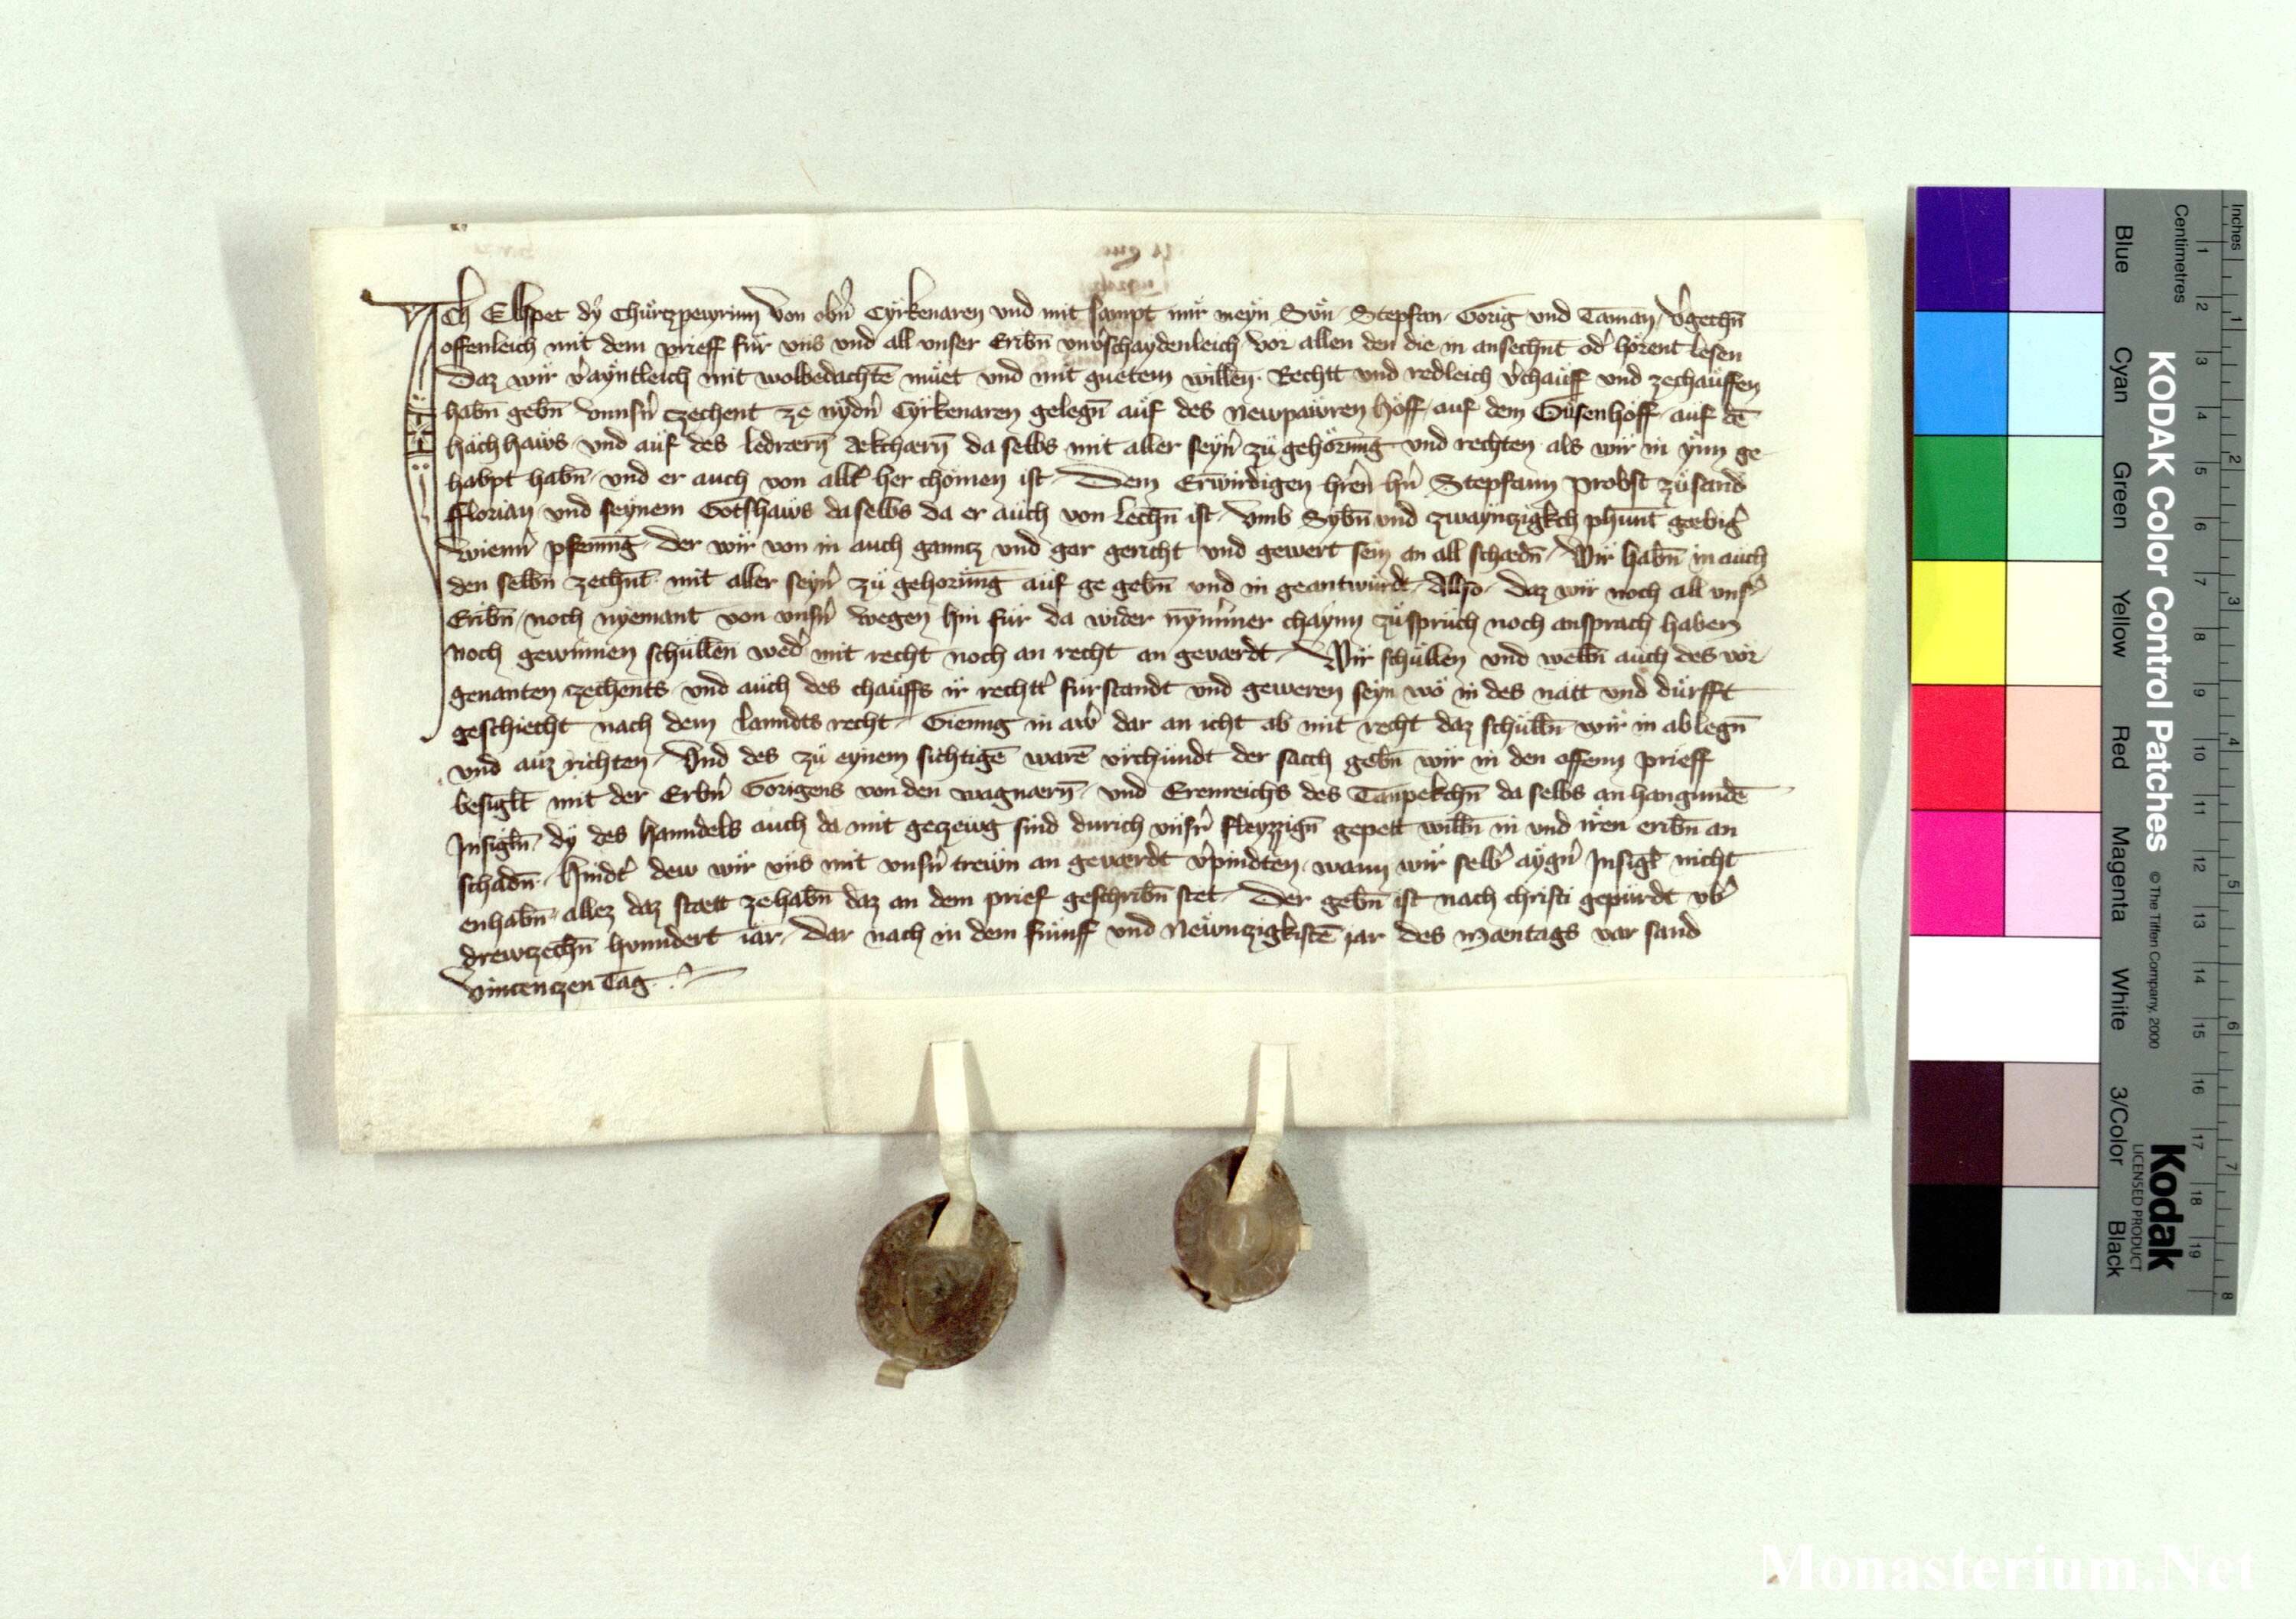 Ich Elspet dÿ Chürtzpewrinn von obn̄ Cyrkenaren und mit sampt mir meyn Sün Stepfan Gorig und Taman v̾gechn̄
offenleich mit dem prieff für uns und all unser Eribn̄ unv̾schaydenleich vor allen den die in ansechnt od̾ hörent lesen
Daz wir v̾ayntleich mit wolbedachtē müet und mit guetem willen Rechtt und redleich v̾chauff und zechauffen
habn̄ gebn̄ vnnsn̾ czechent ze nydn̾ Cyrkenaren gelegn̄ auf des Newpawren hoff auf dem Gusenhoff auf dē
hach haws und auf des ledrærn̄ ækchærn̄ da selbs mit aller seyn̾ zü gehörung und rechten als wir in ynn ge
habpt habn̄ und er auch von allt̾ her chömen ist Dem Erwirdigen hr̄en hn̾ Stepfann probst zü sand
Florian und seynem Gotshaws daselbs da er auch von Lechn̄ ist umb Sybn̄ und zwaynczigkch phunt gæbig̾
wienn̾ pfening der wir von in auch ganntz und gar gericht und gewert sein an all schædn̄ Wir habn̄ in auch
den selbn̄ zechnt mit aller seyn̾ zü gehorung auf ge gebn̄ und in geantwürdt Also daz wir noch all uns̾
Eribn̄ noch nyemant von unsn̾ wegen hin für da wider nymmer chaynn züsprüch noch ansprach haben
noch gewinnen schüllen wed̾ mit recht noch an recht an geværdt Wir schüllen und welln̄ auch des vor
genanten czechents und auch des chauffs ir rechtt̾ fürstandt und geweren seyn wo in des natt und dürfft
geschiecht nach dem Lanndts recht Gieng in aw̾ dar an icht ab mit recht daz schülln̄ wir in ablegn̄
und auz richten Und des zü eynem sichtigē warē ürchundt der sach gebn̄ wir in den offenn prieff
besiglt mit der Erbn̾ Gorigens von den wagnærn̄ und Erenreichs des Tanpekchn̄ da selbs an hangundē
Insigln̄ dÿ des hanndels auch da mit geczewg sind durich unsn̾ fleyzzign̄ gepett willn̄ in und iren eribn̄ an
schadn̄ hindt̾ dew wir uns mit unsn̾ trewn an geværdt v̾pindten wann wir selb̾ aygn̾ Insigl nicht
enhabn̄ allez daz stætt zehabn̄ daz an dem prief geschribn̄ stet Der gebn̄ ist nach christi gepürdt ub̾
drewczechn̄ hunndert iar dar nach in dem fünff und Newnczigkistē jar des mæntags var sand
Vincenczen Tag
KODAK Color Control Patches
© The Tiffen Company, 2000
Kodak
LICENSED PRODUCT
Blue Cyan Green Yellow Red Magenta White 3/Color Black
Inches 1 2 3 4 5 6 7 8
Centimetres 1 2 3 4 5 6 7 8 9 10 11 12 13 14 15 16 17 18 19
Monasterium.Net